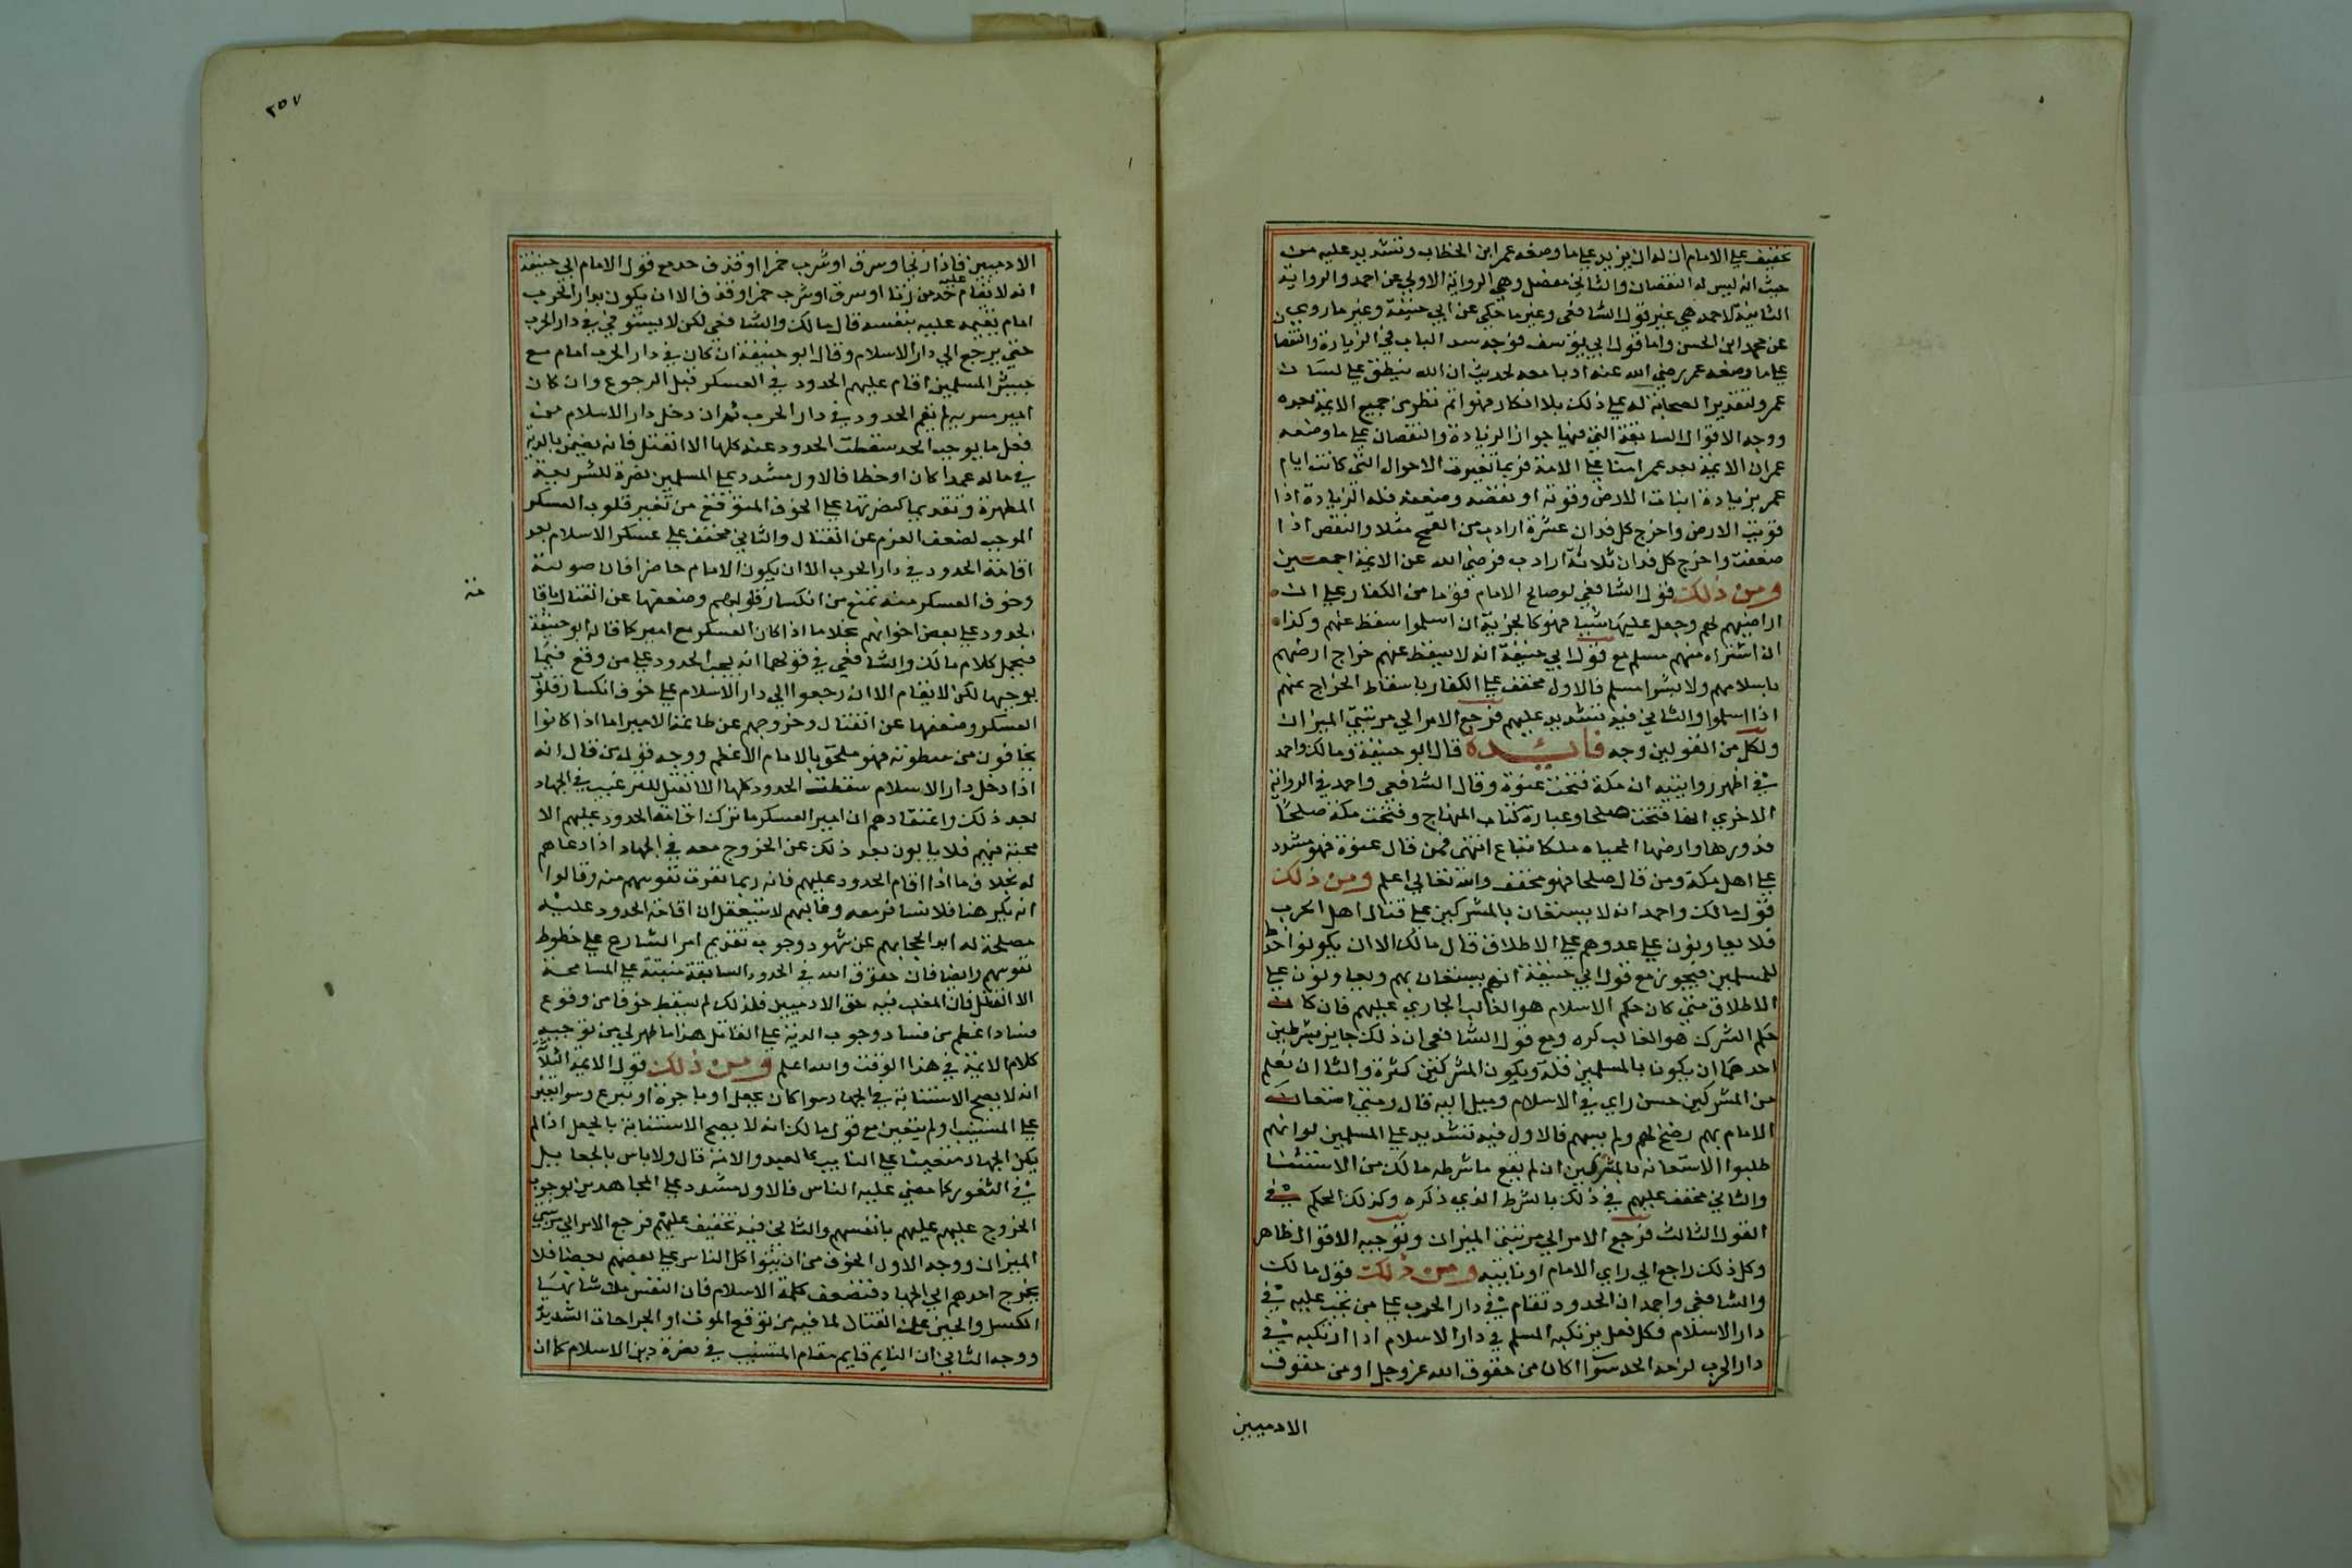 تخفيف علي الامام ان له ان يزيد علي ما وضعه عمر ابن الخطاب وتشديد عليه من
حيث انه ليس له النقصان والثاني مفصل وهي الرواية الاولي عن احمد والرواية
الثانية لاحمد هي غير قول الشافعي وغير ما حكي عن ابي حنيفة وغير ما روي
عن محمد ابن الحسن واما قول ابي يوسف فوجه سد الباب في الزيادة والنقصا
علي ما وضعه عمر رضي الله عنه ادبا معه لحديث ان الله ينطق علي لسان
عمر ولتقرير الصحابة له علي ذلك بلا انكار فهو اتم نظر من جميع الايمة بعده
ووجه الاقوال السابقة التي فيها جواز الزيادة والنقصان علي ما وضعه
عمر ان الايمة بعد عمر امنا علي الامة فربما تغيرت الاحوال التي كانت ايام
عمر بزيادة انبات الارض وقوته او نقصه وضعفه فله الزيادة اذا
قويت الارض واخرج كل فدان عشرة ارادب من القمح مثلا والنقص اذا
ضعفت واخرج كل فدان ثلاثة ارادب فرضي الله عن الايمة اجمعين
ومن ذلك قول الشافعي لو صالح الامام قوما من الكفار علي ان
اراضيهم لهم وجعل عليها شيا فهو كالجزية ان اسلموا سقط عنهم وكذا
ان اشتراه منهم مسلم مع قول ابي حنيفة انه لا يسقط عنهم خراج ارضهم
باسلامهم ولا بشرا مسلم فالاول مخفف علي الكفار باسقاط الخراج عنهم
اذا اسلموا والثاني فيه تشديد عليهم فرجع الامر الي مرتبتي الميزان
ولكل من القولين وجه فائدة قال ابو حنيفة ومالك واحمد
في اظهر روايتيه ان مكة فتحت عنوة وقال الشافعي واحمد في الرواية
الاخري انها فتحت صلحا وعبارة كتاب المنهاج وفتحت مكة صلحا
فدورها وارضها المحياه ملك تباع انتهي فمن قال عنوة فهو مشدد
علي اهل مكة ومن قال صلحا فهو مخفف والله تعالي اعلم ومن ذلك
قول مالك واحمد انه لا يستعان بالمشركين علي قتال اهل الحرب
فلا يعاونون علي عدوهم علي الاطلاق قال مالك الا ان يكونوا خدما
للمسلمين فيجوز مع قول ابي حنيفة انهم يستعان بهم ويعاونون علي
الاطلاق متي كان حكم الاسلام هو الغالب الجاري عليهم فان كان
حكم الشرك هو الغالب كره ومع قول الشافعي ان ذلك جايز بشرطين
احدهما ان يكون بالمسلمين قلة ويكون المشركين كثرة والثا ان يعلم
من المشركين حسن راي في الاسلام وميل اليه قال ومتي استعان
الامام بهم رضخ لهم ولم يسهم فالاول فيه تشديد علي المسلمين لو انهم
طلبوا الاستعانة بالمشركين ان لم يقع ما شرطه مالك من الاستثنا
والثاني مخفف عليهم في ذلك بالشرط الذي ذكره وكذلك الحكم في
القول الثالث فرجع الامر الي مرتبتي الميزان وتوجيه الاقوال ظاهر
وكل ذلك راجع الي راي الامام او نايبه ومن ذلك قول مالك
والشافعي واحمد ان الحدود تقام في دار الحرب علي من تجب عليه في
دار الاسلام فكل فعل يرتكبه المسلم في دار الاسلام اذا ارتكبه في
دار الحرب لزمه الحد سوا كان من حقوق الله عز وجل او من حقوق
الادميين
٢٥٧
الادميين فاذا زنا وسرق او شرب خمرا او قذف حد مع قول الامام ابي حنيفة
انه لا يقام عليه حد من زنا او سرق او شرب خمر او قذف الا ان يكون بدار الحرب
امام يقيمه عليه بنفسه قال مالك والشافعي لكن لا يستوفي في دار الحرب
حتي يرجع الي دار الاسلام وقال ابو حنيفة ان كان في دار الحرب امام مع
جيش المسلمين اقام عليهم الحدود في العسكر قبل الرجوع وان كان
امير سرية لم يقم الحدود في دار الحرب ثم ان دخل دار الاسلام من
فعل ما يوجب الحد سقطت الحدود عنه كلها الا القتل فانه يضمن بالدية
في ماله عمدا كان او خطا فالاول مشدد علي المسلمين نصرة للشريعة
المطهرة وتقديما لنصرتها علي الخوف المتوقع من تغير قلوب العسكر
الموجب لضعف العزم عن القتال والثاني مخفف علي عسكر الاسلام بعد
اقامة الحدود في دار الحرب الا ان يكون الامام حاضرا فان صولته
وخوف العسكر منه تمنع من انكسار قلوبهم وضعفها عن القتال باقا
منه
الحدود علي بعض اخوانهم بخلاف ما اذا كان العسكر مع امير كما قال ابو حنيفة
فيحمل كلام مالك والشافعي في قولهما انه يجب الحدود علي من وقع فيما
يوجبها لكن لا يقام الا ان رجعوا الي دار الاسلام علي خوف انكسار قلوب
العسكر وضعفها عن القتال وخروجهم عن طاعة الامير اما اذا كانوا
يخافون من سطوته فهو ملحق بالامام الاعظم ووجه قول من قال انه
اذا دخل دار الاسلام سقطت الحدود كلها الا القتل للترغيب في الجهاد
بعد ذلك واعتقادهم ان امير العسكر ما ترك اقامة الحدود عليهم الا
محبة فيهم فلا يابون بعد ذلك عن الخروج معه في الجهاد اذا دعاهم
له بخلاف ما اذا اقام الحدود عليهم فانه ربما نفرت نفوسهم منه وقالوا
انه يكرهنا فلا نسافر معه وغالبهم لا يتعقل ان اقامة الحدود عليه
مصلحة له ابدا لحجابهم عن شهود وجوب تقديم امر الشارع علي حظوظ
نفوسهم وايضا فان حقوق الله في الحدود السابقة مبنية علي المسامحة
الا القتل فان المغلب فيه حق الادميين فلذلك لم يسقط خوفا من وقوع
فساد اعظم من فساد وجوب الدية علي القاتل هذا ما ظهر لي من توجيه
كلام الايمة في هذا الوقت والله اعلم ومن ذلك قول الايمة الثلا
انه لا يصح الاستنابة في الجهاد سوا كان بجعل او باجرة او تبرع وسوا تعين
علي المستنيب او لم يتعين مع قول مالك انه لا يصح الاستنابة بالجعل اذا لم
يكن الجهاد متعينا علي النايب كالعبد والامة قال ولا باس بالجعايل
في الثغور كما مضي عليه الناس فالاول مشدد علي المجاهدين بوجوب
الخروج عليهم عليهم بانفسهم والثاني فيه تخفيف عليهم فرجع الامر الي مرتبتي
الميزان ووجه الاول الخوف من ان يتواكل الناس علي بعضهم بعضا فلا
يخرج احدهم الي الجهاد فتضعف كلمة الاسلام فان النفس من شانها
الكسل والجبن عن القتال لما فيه من توقع الموت او الجراحات الشديدة
ووجه الثاني ان النايم قايم مقام المستنيب في نصرة دين الاسلام كما ان